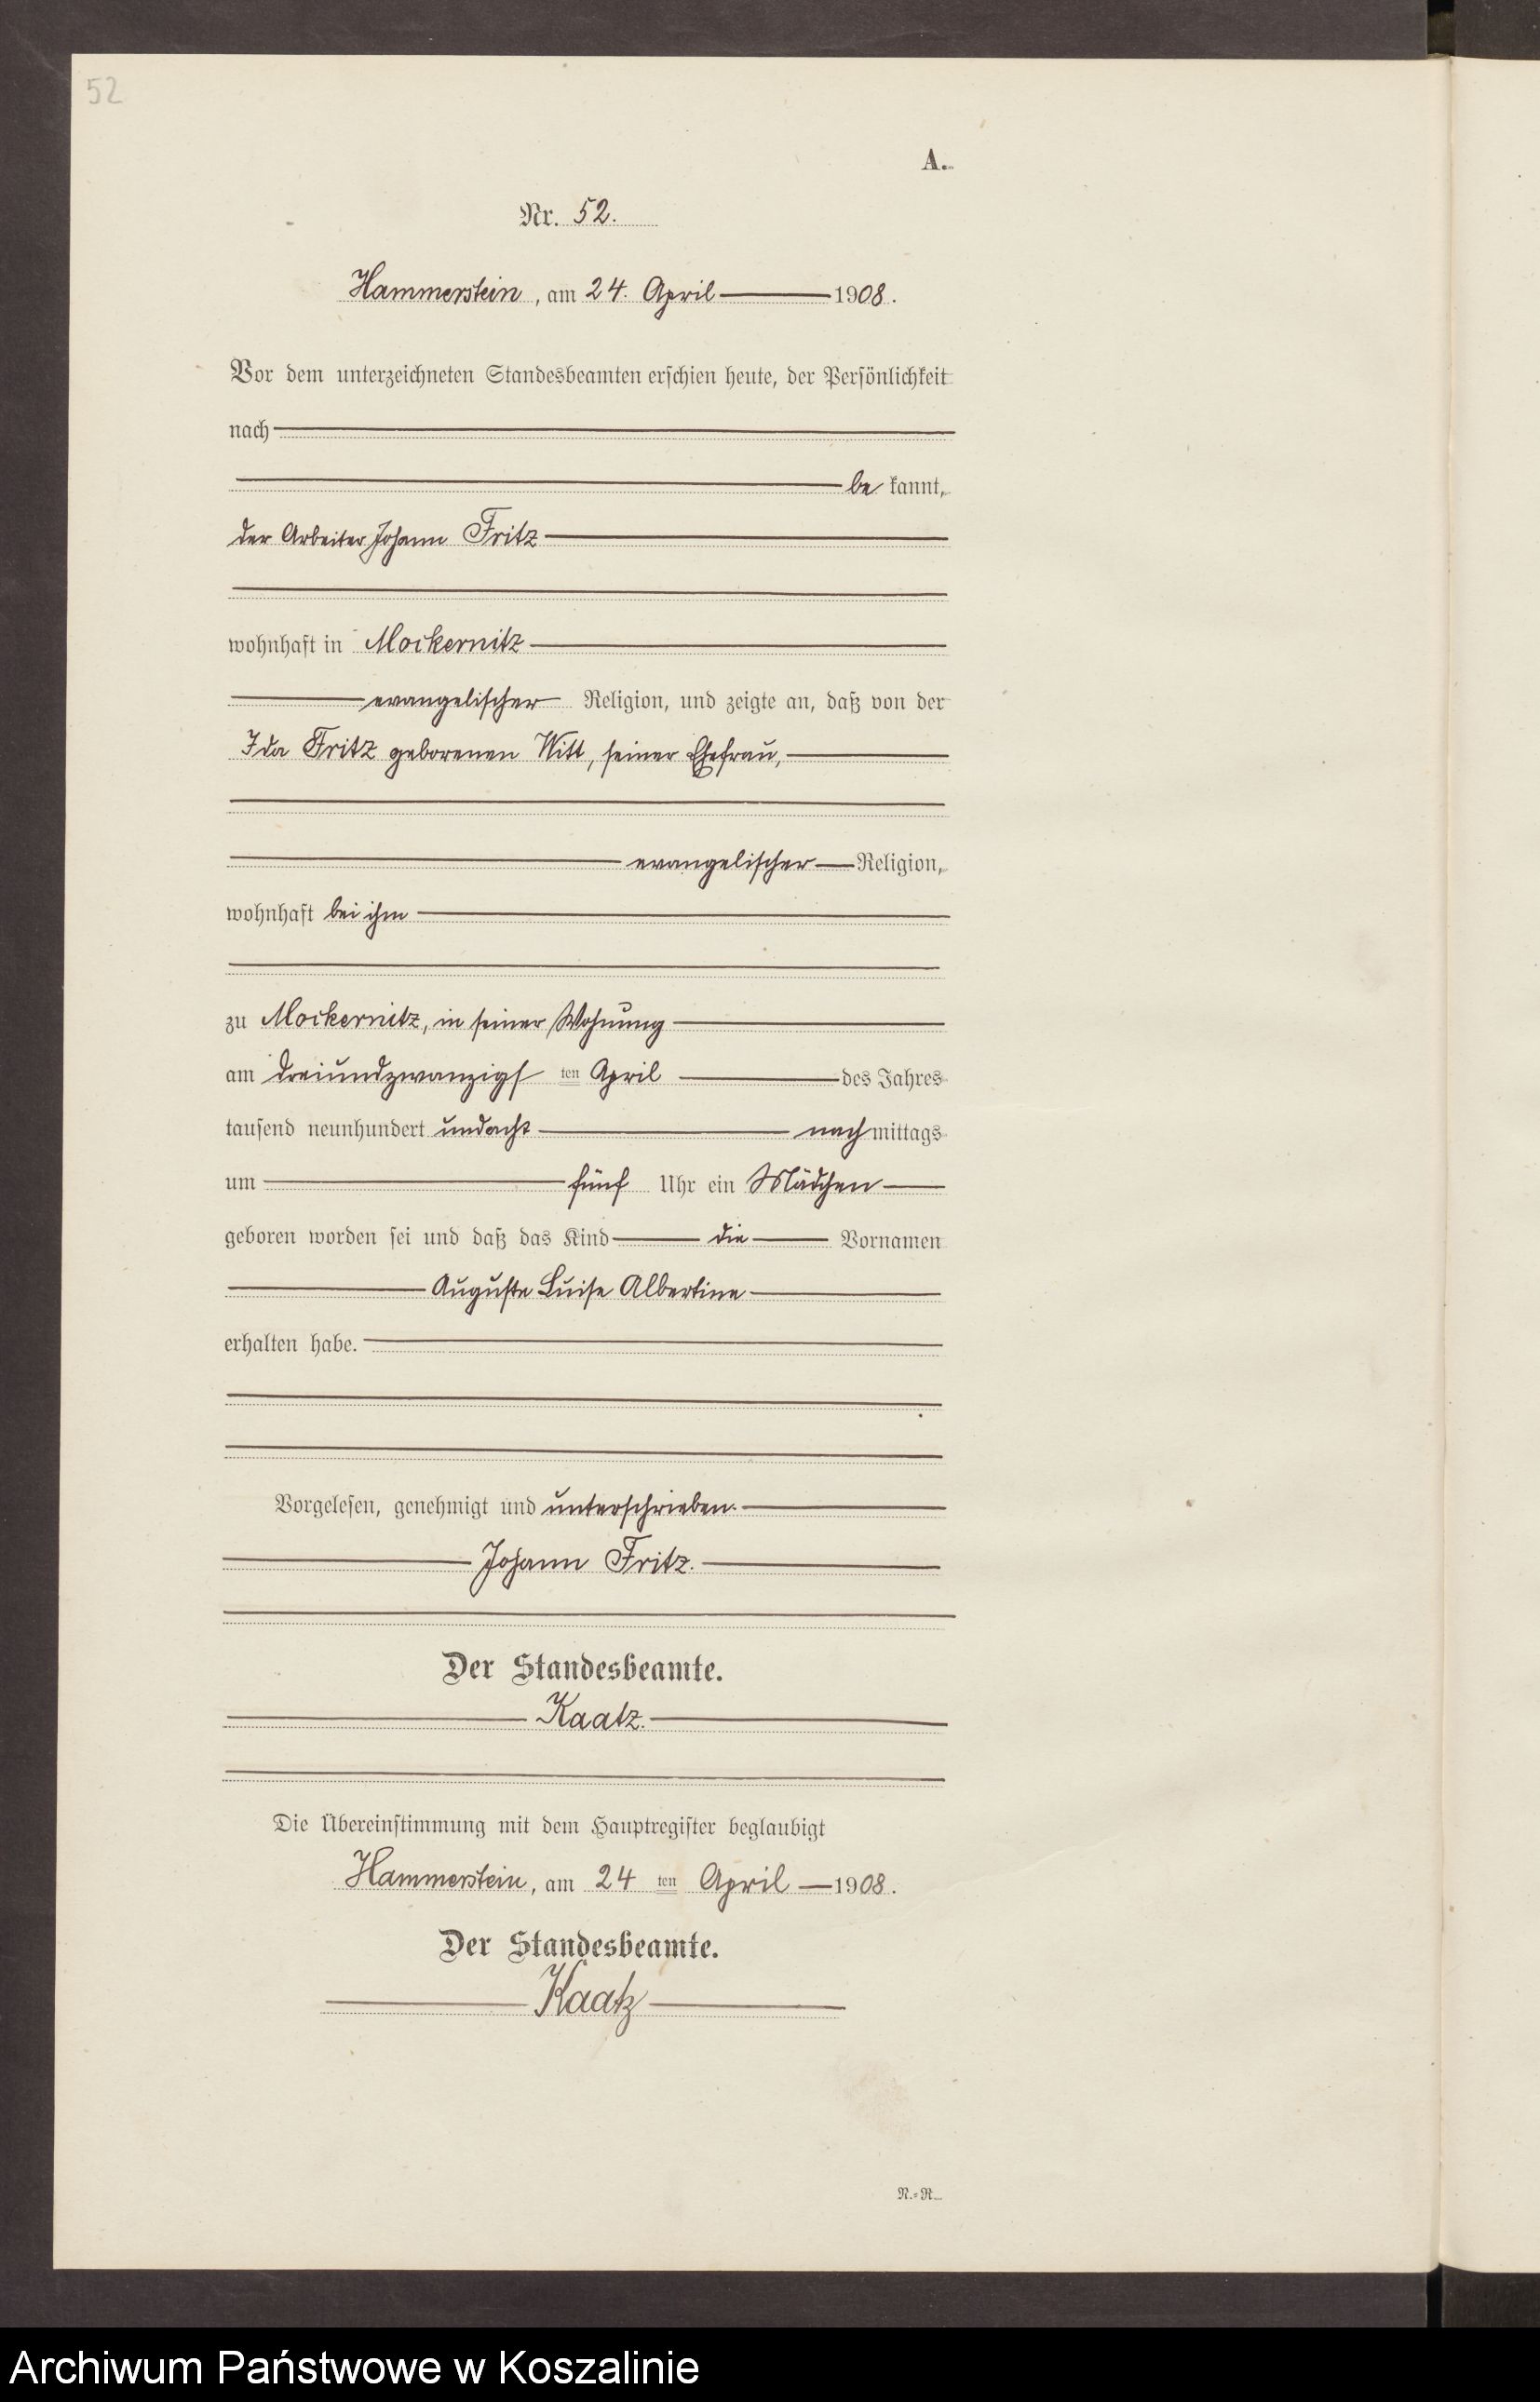 52
A.
Nr. 52.
Hammerstein, am 24. April 1908.
Vor dem unterzeichneten Standesbeamten erschien heute, der Persönlichkeit
nach
be kannt,
der Arbeiter Johann Fritz
wohnhaft in Mockernitz
evangelischer Religion, und zeigte an, daß von der
Ida Fritz geborenen Witt, seiner Ehefrau,
evangelischer Religion,
wohnhaft bei ihm
zu Mockernitz, in seiner Wohnung
am dreiundzwanzigs ten April des Jahres
tausend neunhundert undacht nachmittags
um fünf Uhr ein Mädchen
geboren worden sei und daß das Kind die Vornamen
Auguste Luise Albertine
erhalten habe.
Vorgelesen, genehmigt und unterschrieben.
Johann Fritz.
Der Standesbeamte.
Kaatz.
Die Übereinstimmung mit dem Hauptregister beglaubigt
Hammerstein, am 24 ten April 1908.
Der Standesbeamte.
Kaatz
N.=R.
Archiwum Państwowe w Koszalinie